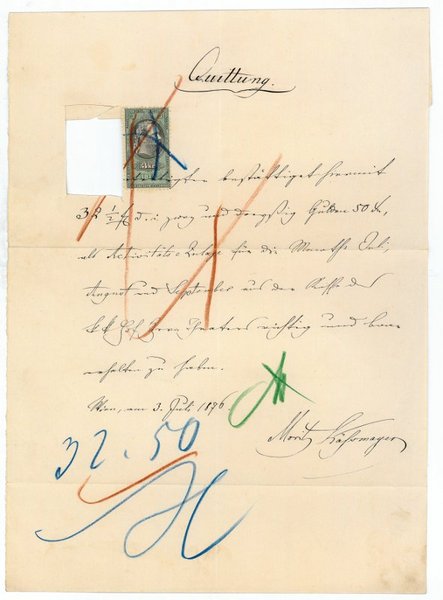 Quittung.
bestättiget hiermit
32 1/2 f d. i. zwey und dreyßig Gulden 50 kr,
als Activitäts-Zulage für die Monathe Juli,
August und September aus der Kasse des
k. k. Hof-Opern-Theaters richtig und baar
erhalten zu haben.
Wien, am 3. Juli 1876
Moritz Käßmayer
32.50